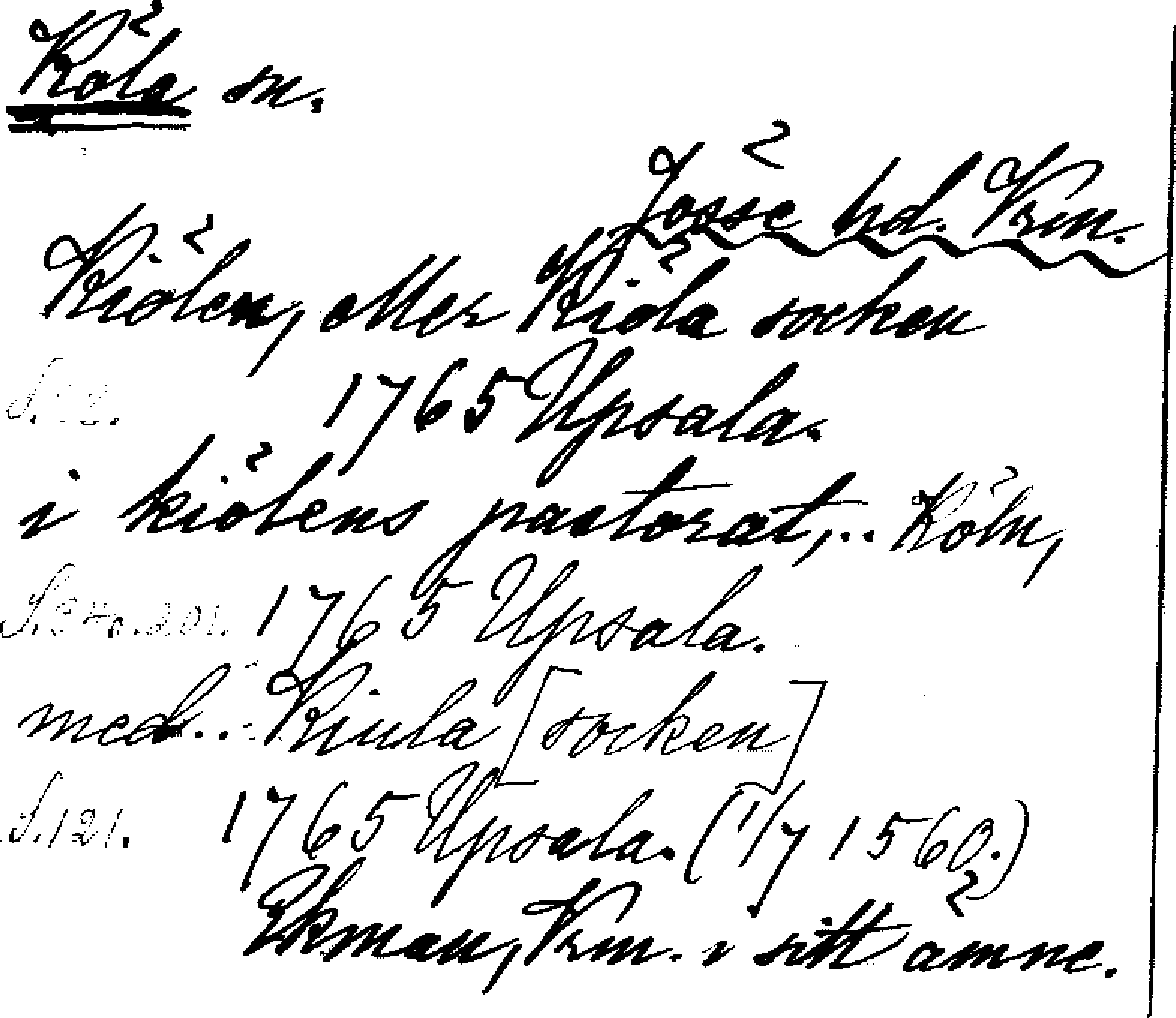 Köla sn.
Jösse hd. Vrm.
Kiölen, eller Kiöla socken
S. 22. 1765 Upsala.
i kiölens pastorat,.. Köln,
1765 Upsala.
med... Kiula [socken]
S. 121. 1765 Upsala. (1/7 1560.)
Ekman, Vrm. i sitt ämne.